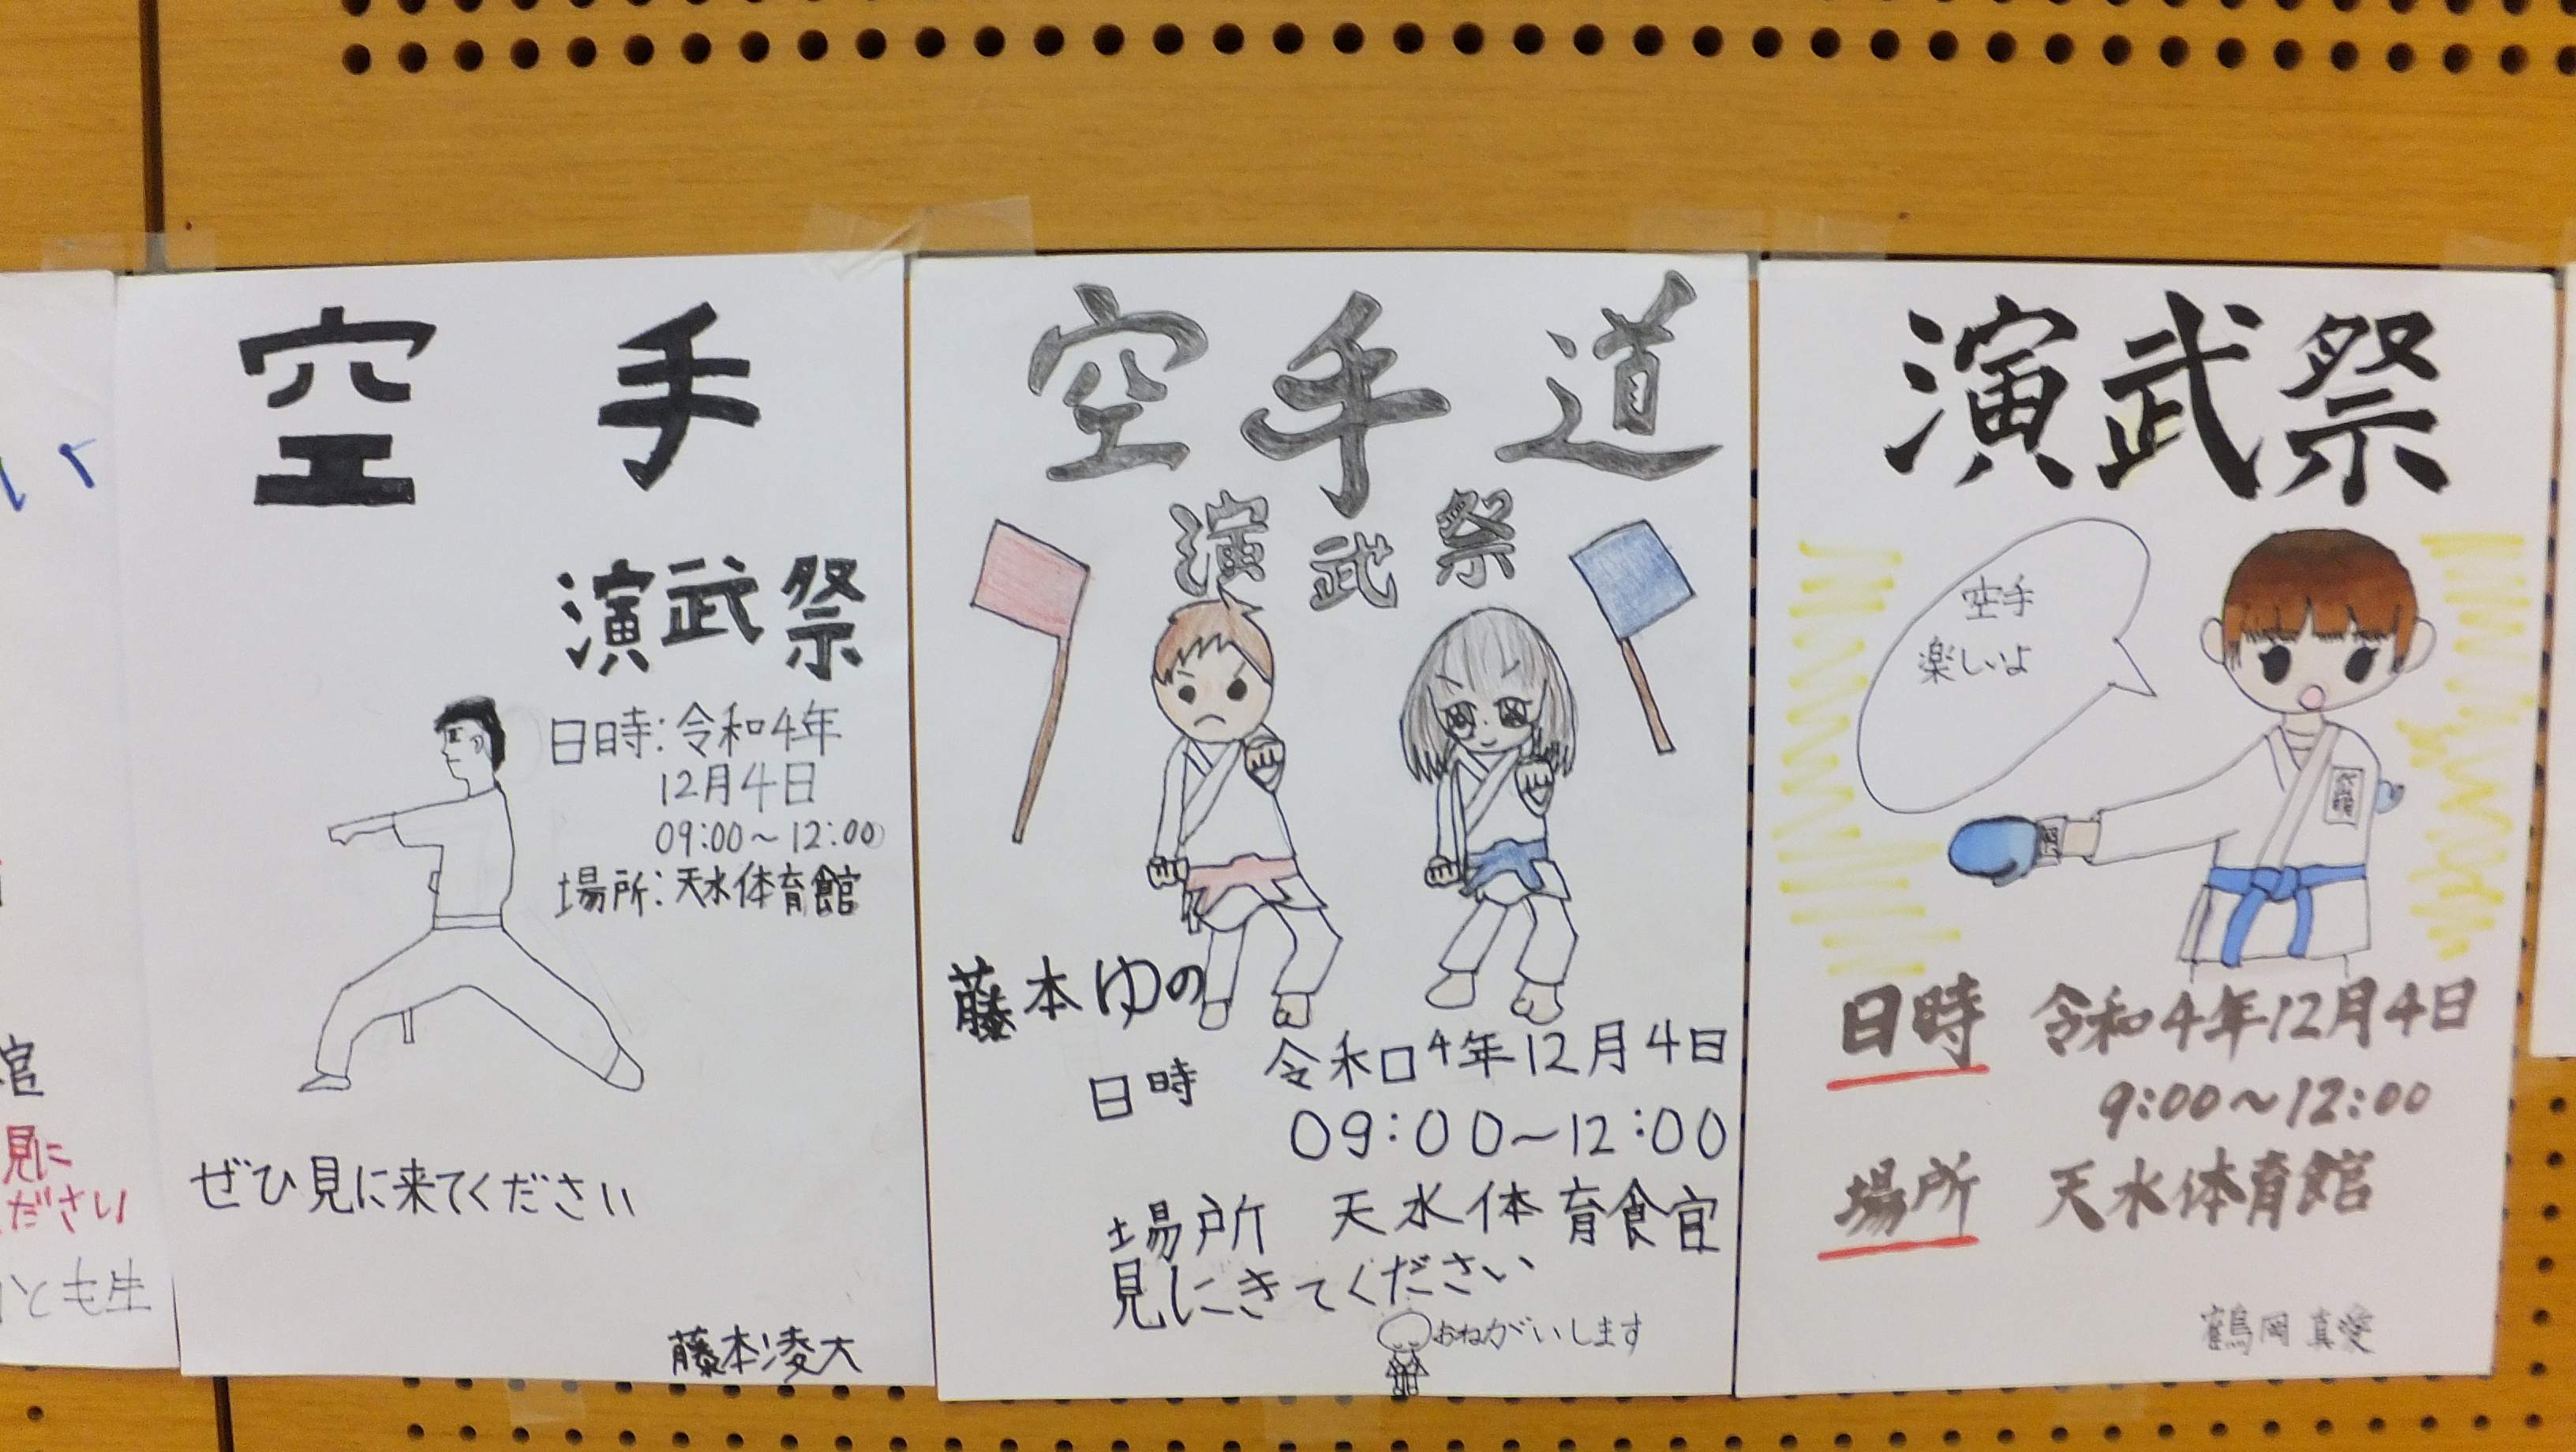 官
見に
ださい
空手
演武祭
日時:令和4年
12月4日
09:00~12:00
場所:天水体育館
ぜひ見に来てください
藤本凌大
空手道
演武祭
藤本ゆの
日時 令和4年12月4日
09:00~12:00
場所 天水体育館
見にきてください
おねがいします
演武祭
空手
楽しいよ
日時 令和4年12月4日
9:00~12:00
場所 天水体育館
鶴岡真愛